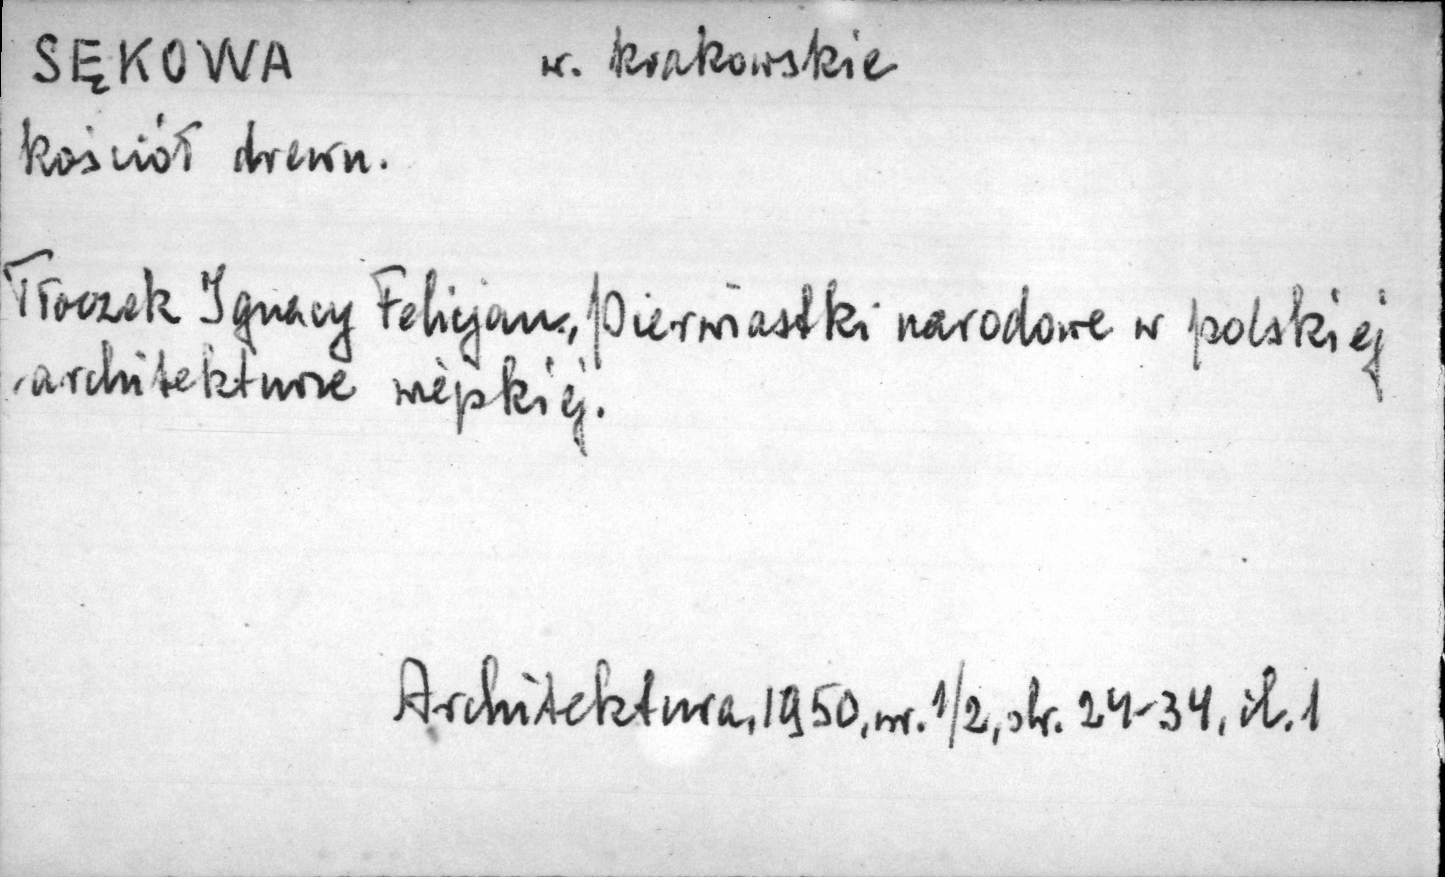 SĘKOWA w. krakowskie
kościół drewn.
Tłoczek Ignacy Felicjan, Pierwiastki narodowe w polskiej
architekturze wiejskiej.
Architektura, 1950, nr. 1/2, str. 24-34, il. 1